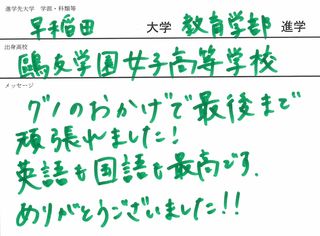 進学先大学 学部・科類等
早稲田 大学 教育学部 進学
出身高校
鷗友学園女子高等学校
メッセージ
グノのおかげで最後まで
頑張れました!
英語も国語も最高です.
ありがとうございました!!